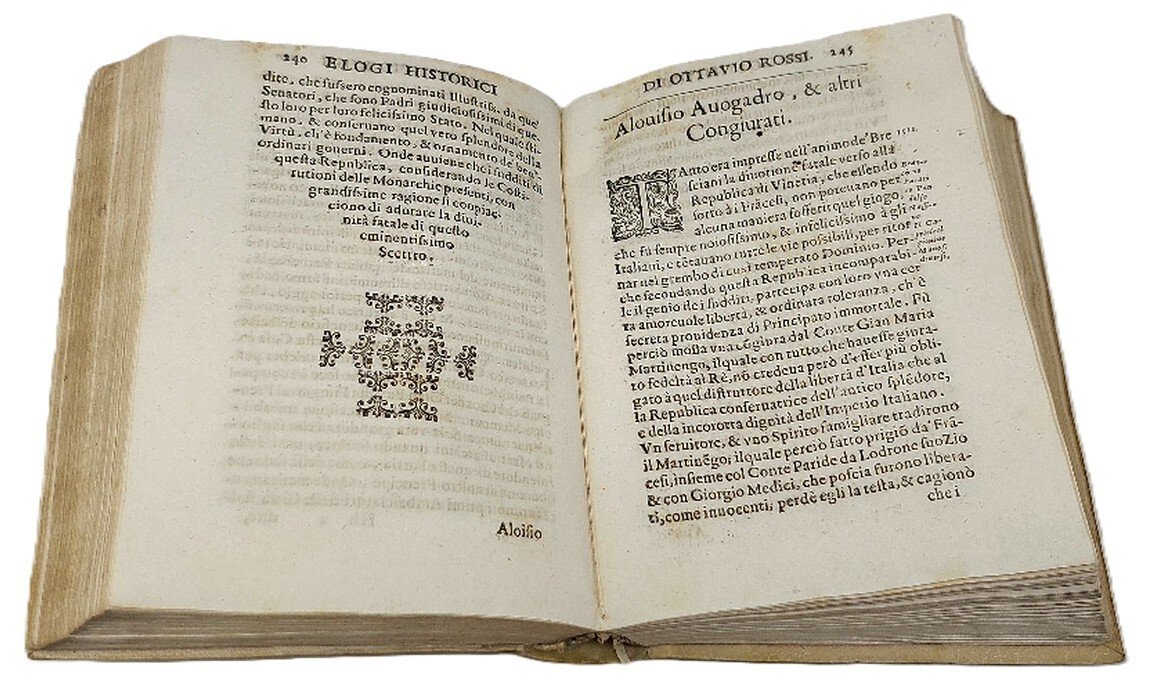 240 ELOGI HISTORICI
dito, che fussero cognominati Illustriss. da que'
Senatori, che sono Padri giudiciosissimi di que-
sto loro per loro felicissimo Stato. Nel quale sti-
mano, & conseruano quel vero splendore della
Virtù, ch'è fondamento, & ornamento de' ben'
ordinari gouerni. Onde auuiene che i sudditi di
questa Republica, considerando le Costi-
tutioni delle Monarchie presenti, con
grandissime ragione si conpiac-
ciono di adorare la diui
nità fatale di questo
eminentissimo
Scettro.
Aloisio
DI OTTAVIO ROSSI. 245
Alouisio Auogadro, & altri
Congiurati.
TAnto era impresse nell'animo de' Bre 1512.
sciani la diuotione fatale verso alla
Republica di Vinetia, che essendo
sotto à i Frãcesi, non poteuano per
alcuna maniera sofferir quel giogo,
che fù sempre noiosissimo, & infelicissimo à gli
Italiani, e tẽtauano tutte le vie possibili, per ritor
nar nel grembo di cusi temperato Dominio. Per-
che secondando questa Republica incomparabi-
le il genio de i sudditi, partecipa con loro vna cer
ta amoreuole libertà, & ordinata toleranza, ch'è
secreta prouidenza di Principato immortale. Fù
perciò mossa vna cõgiura dal Conte Gian Maria
Martinengo, il quale con tutto che hauesse giura-
to fedeltà al Rè, nõ credeua però d'esser più obli-
gato à quel distruttore della libertà d'Italia che al
la Republica conseruatrice dell'antico splẽdore,
e della incorotta dignità dell'Imperio Italiano.
Vn seruitore, & vno Spirito famigliare tradirono
il Martinẽgo; il quale perciò fatto prigiõ da' Frã-
cesi, insieme col Conte Paride da Lodrone suo Zio
& con Giorgio Medici, che poscia furono libera-
ti, come innocenti; perdè egli la testa, & cagionò
che i